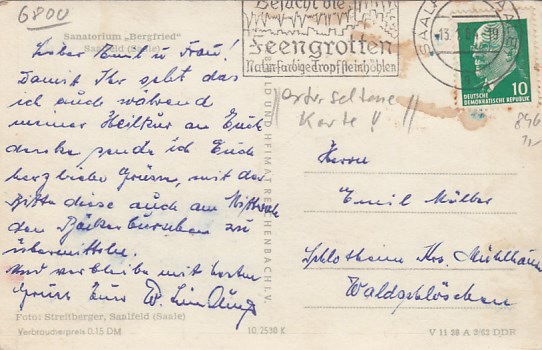 6800
Sanatorium „Bergfried"
Saalfeld (Saale)
Besucht die
Feengrotten
Naturfarbige Tropfsteinhöhlen
SAALFELD
DEUTSCHE
DEMOKRATISCHE REPUBLIK
10
Lieber Emil u. Frau!
Damit Ihr seht das
ich auch während
meiner Heilkur an Euch
denke sende ich Euch
herzliche Grüsse, mit der
Bitte diese auch am
den zu
übermitteln.
Und verbleibe mit besten
Gruss Euer W.
seltene
Karte !!!
Herrn
Emil Müller
Schlotheim Krs. Mühlhausen
Waldschlösschen
BILD UND HEIMAT REICHENBACH I. V.
Foto: Streitberger, Saalfeld (Saale)
Verbraucherpreis 0,15 DM
10/2530 K
V 11 28 A 3/62 DDR